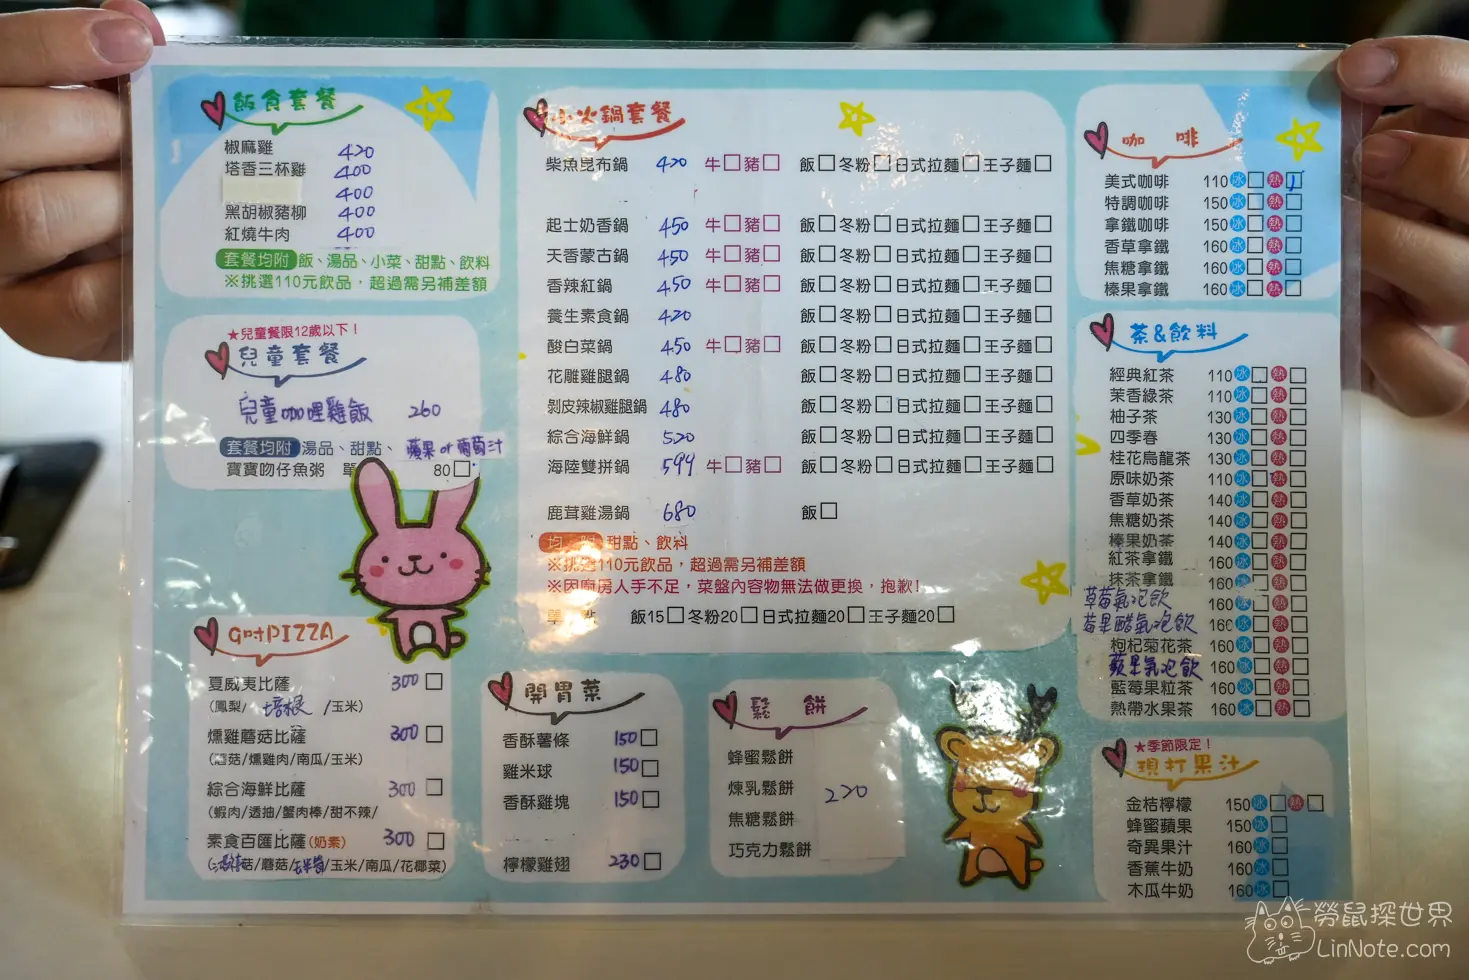 飯食套餐
椒麻雞 420
塔香三杯雞 400
400
黑胡椒豬柳 400
紅燒牛肉 400
套餐均附 飯、湯品、小菜、甜點、飲料
※挑選110元飲品，超過需另補差額
★兒童餐限12歲以下！
兒童套餐
兒童咖哩雞飯 260
套餐均附 湯品、甜點、蘋果or葡萄汁
寶寶吻仔魚粥 單 80□
GotPIZZA
夏威夷比薩 300□
(鳳梨/培根/玉米)
燻雞蘑菇比薩 300□
(蘑菇/燻雞肉/南瓜/玉米)
綜合海鮮比薩 300□
(蝦肉/透抽/蟹肉棒/甜不辣/
素食百匯比薩(奶素) 300□
菇/蘑菇/玉米筍/玉米/南瓜/花椰菜)
小火鍋套餐
柴魚昆布鍋 420 牛□豬□ 飯□冬粉□日式拉麵□王子麵□
起士奶香鍋 450 牛□豬□ 飯□冬粉□日式拉麵□王子麵□
天香蒙古鍋 450 牛□豬□ 飯□冬粉□日式拉麵□王子麵□
香辣紅鍋 450 牛□豬□ 飯□冬粉□日式拉麵□王子麵□
養生素食鍋 420 飯□冬粉□日式拉麵□王子麵□
酸白菜鍋 450 牛□豬□ 飯□冬粉□日式拉麵□王子麵□
花雕雞腿鍋 480 飯□冬粉□日式拉麵□王子麵□
剝皮辣椒雞腿鍋 480 飯□冬粉□日式拉麵□王子麵□
綜合海鮮鍋 520 飯□冬粉□日式拉麵□王子麵□
海陸雙拼鍋 599 牛□豬□ 飯□冬粉□日式拉麵□王子麵□
鹿茸雞湯鍋 680 飯□
均附 甜點、飲料
※挑選110元飲品，超過需另補差額
※因廚房人手不足，菜盤內容物無法做更換，抱歉！
單 飯15□冬粉20□日式拉麵20□王子麵20□
開胃菜
香酥薯條 150□
雞米球 150□
香酥雞塊 150□
檸檬雞翅 230□
鬆餅
蜂蜜鬆餅
煉乳鬆餅 220
焦糖鬆餅
巧克力鬆餅
咖啡
美式咖啡 110冰□熱□
特調咖啡 150冰□熱□
拿鐵咖啡 150冰□熱□
香草拿鐵 160冰□熱□
焦糖拿鐵 160冰□熱□
榛果拿鐵 160冰□熱□
茶&飲料
經典紅茶 110冰□熱□
茉香綠茶 110冰□熱□
柚子茶 130冰□熱□
四季春 130冰□熱□
桂花烏龍茶 130冰□熱□
原味奶茶 110冰□熱□
香草奶茶 140冰□熱□
焦糖奶茶 140冰□熱□
榛果奶茶 140冰□熱□
紅茶拿鐵 160冰□熱□
抹茶拿鐵 160冰□熱□
草莓氣泡飲 160冰□熱□
莓果醋氣泡飲 160冰□熱□
枸杞菊花茶 160冰□熱□
蘋果氣泡飲 160冰□熱□
藍莓果粒茶 160冰□熱□
熱帶水果茶 160冰□熱□
★季節限定！
現打果汁
金桔檸檬 150冰□熱□
蜂蜜蘋果 150冰□
奇異果汁 160冰□
香蕉牛奶 160冰□
木瓜牛奶 160冰□
勞鼠探世界
LinNote.com